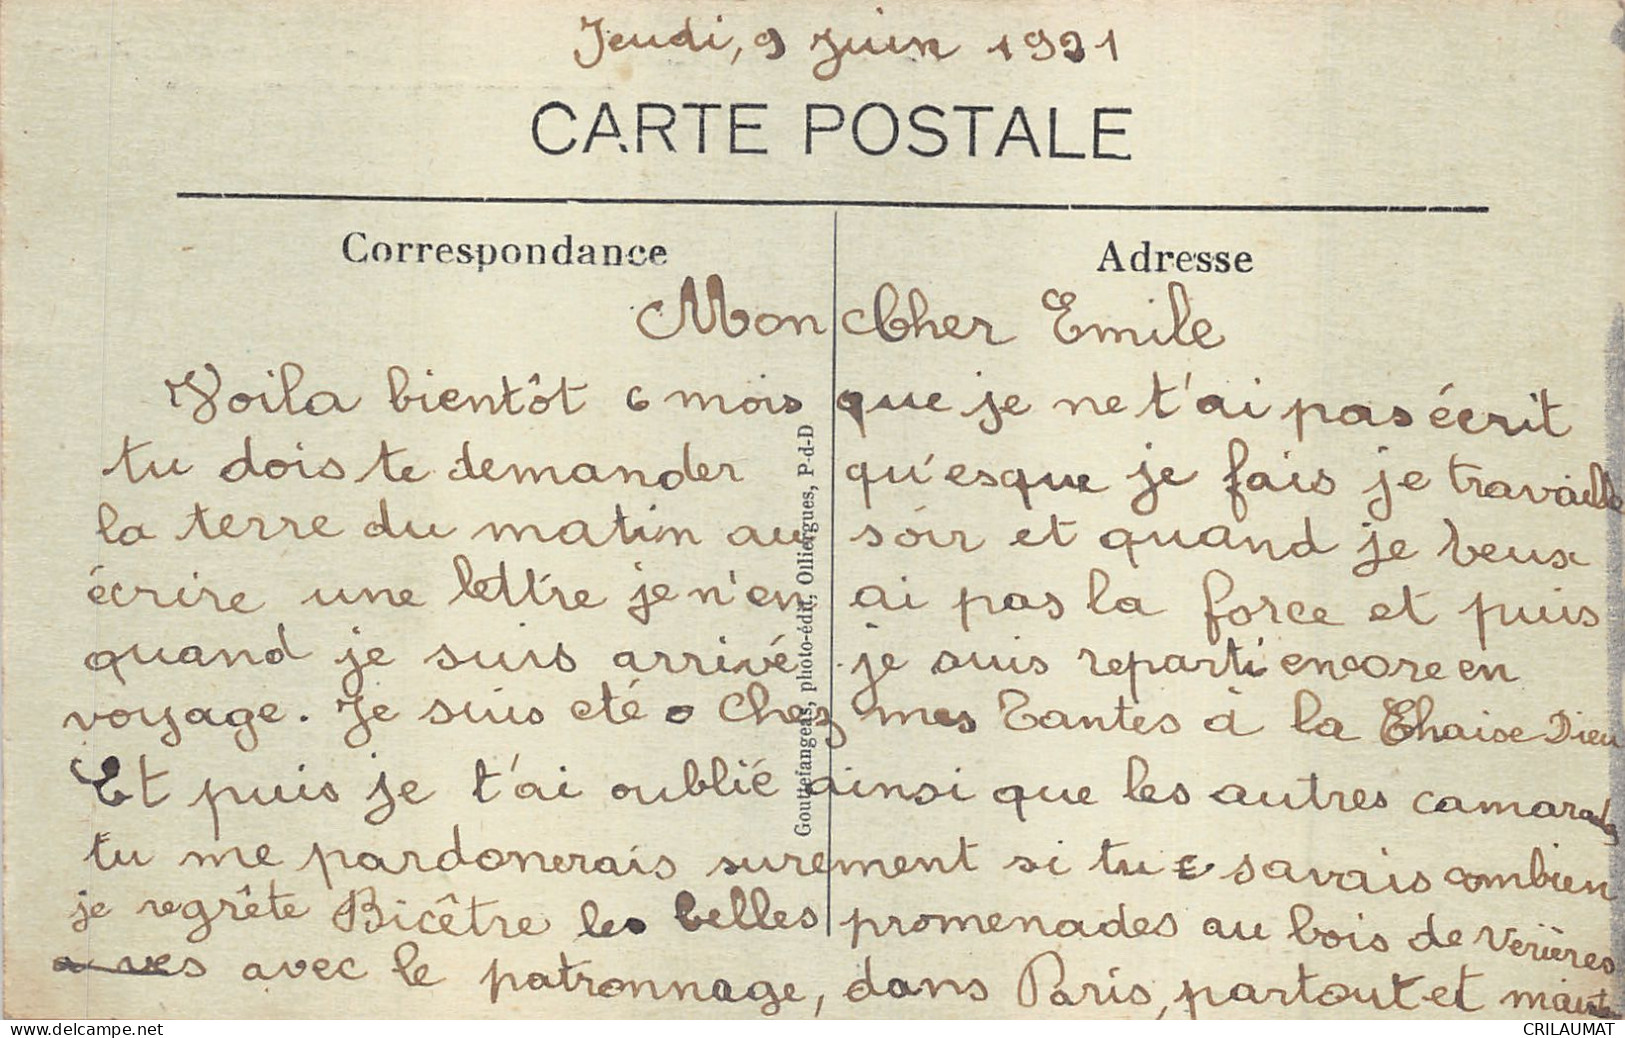 Jeudi, 9 Juin 1921
CARTE POSTALE
Correspondance
Adresse
Mon Cher Emile
Voila bientôt 6 mois que je ne t'ai pas écrit
tu dois te demander qu'esque je fais je travaille
la terre du matin au soir et quand je veux
écrire une lettre je n'en ai pas la force et puis
quand je suis arrivé je suis reparti encore en
voyage. Je suis eté chez mes Tantes à la Chaise Dieu
Et puis je t'ai oublié ainsi que les autres camarades
tu me pardonerais surement si tu savais combien
je regrête Bicêtre les belles promenades au bois de Verières
avec le patronnage, dans Paris, partout et
Gouttefangeas, photo-édit, Olliergues, P-d-D
delcampe.net
CRILAUMAT